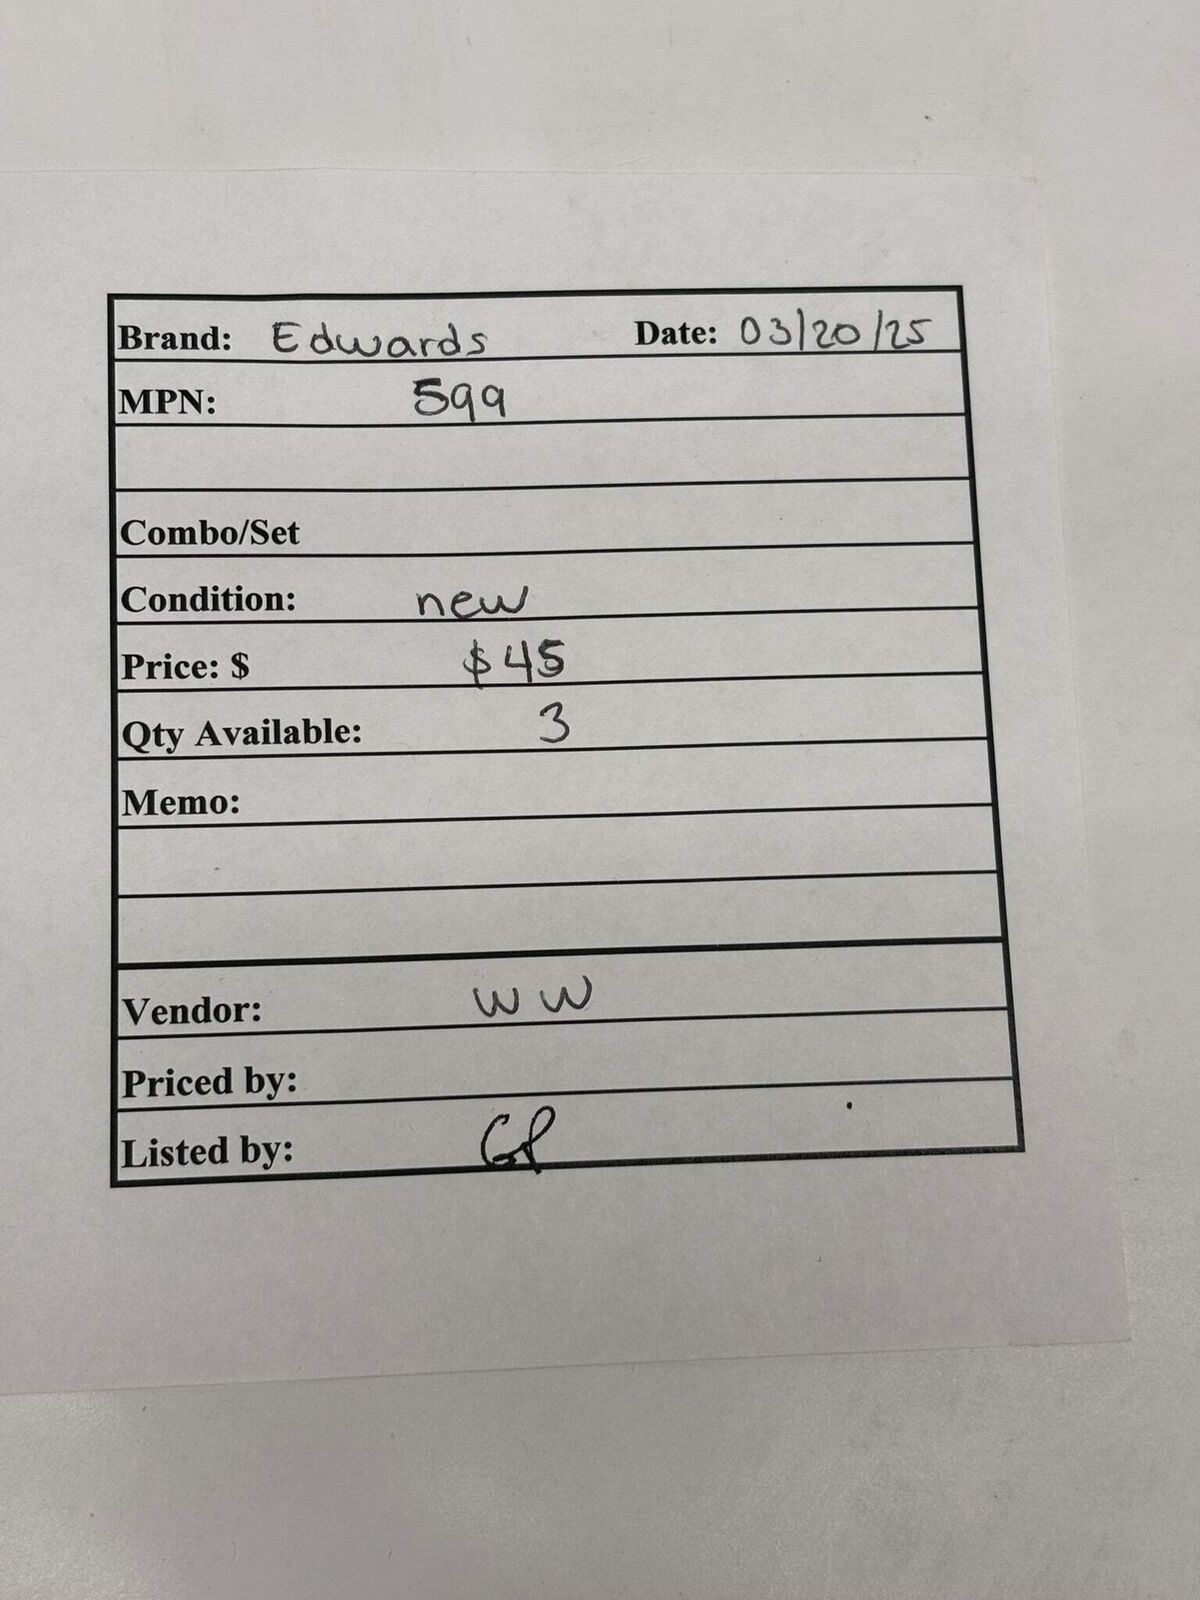 Brand: Edwards Date: 03/20/25
MPN: 599
Combo/Set
Condition: new
Price: $ $45
Qty Available: 3
Memo:
Vendor: WW
Priced by:
Listed by: